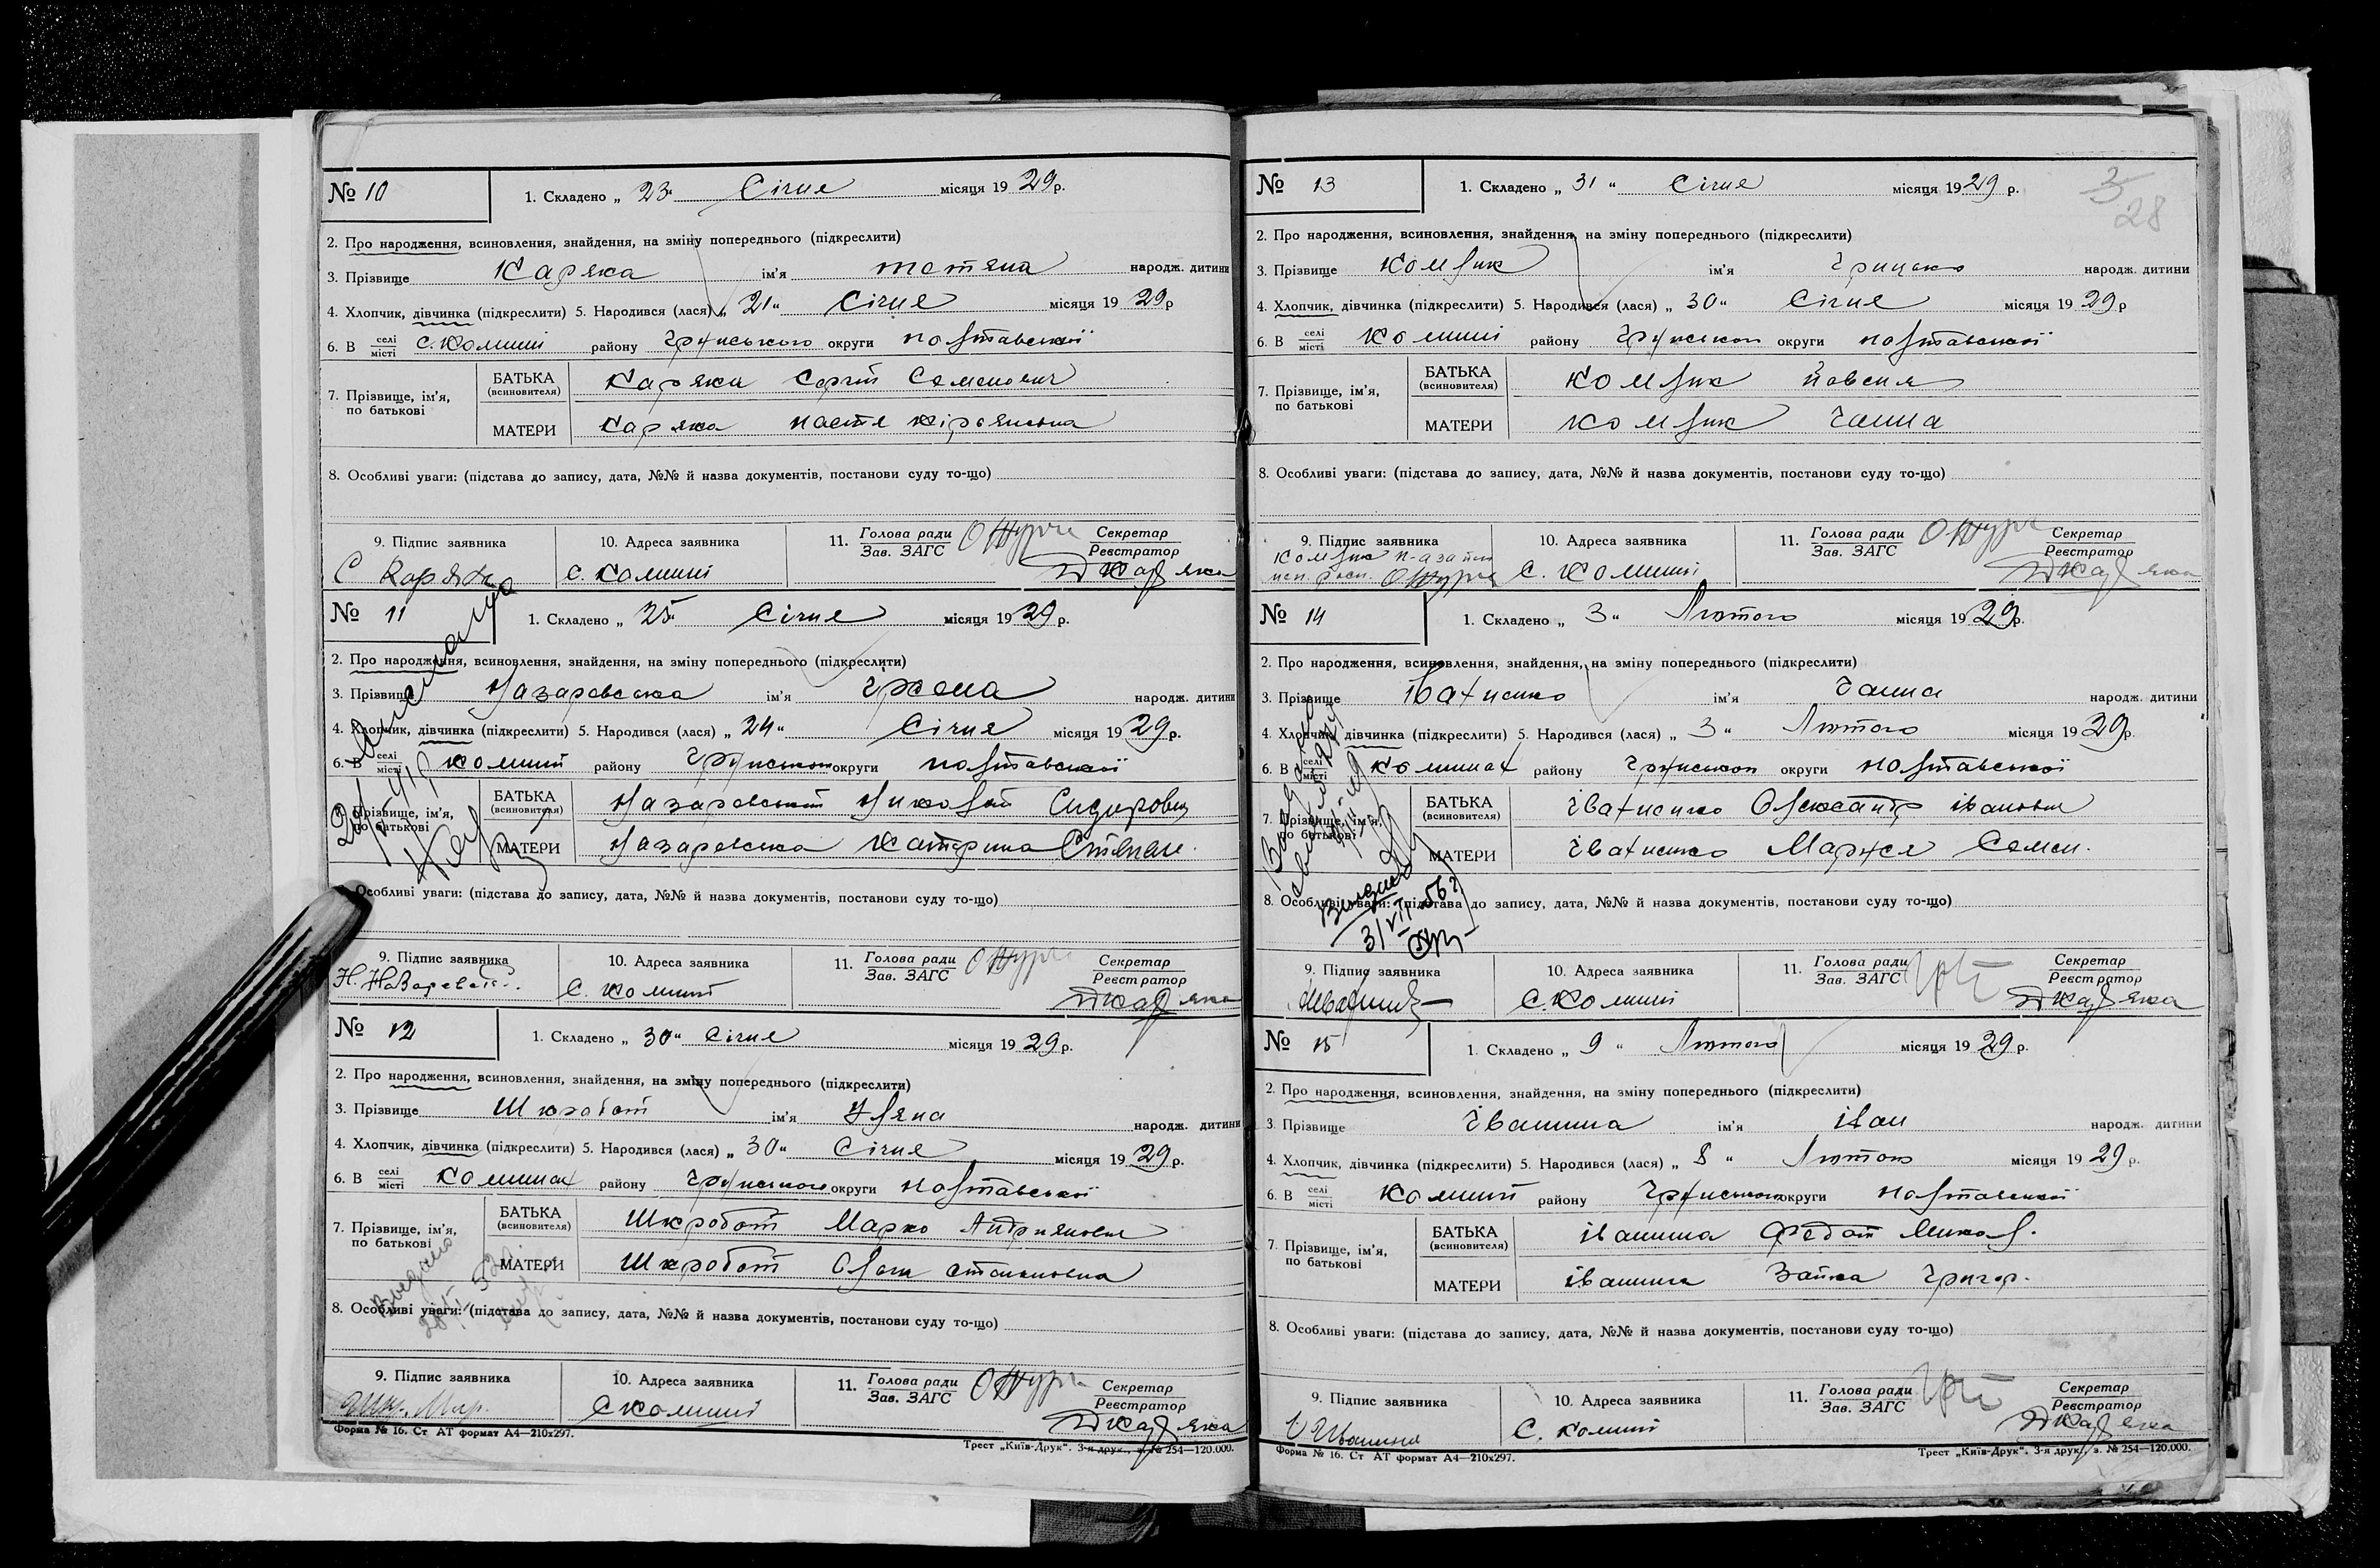 № 10
1. Складено „ 23 “ Січня місяця 1929 р.
2. Про народження, всиновлення, знайдення, на зміну попереднього (підкреслити)
3. Прізвище Каряка ім'я Тетяна народж. дитини
4. Хлопчик, дівчинка (підкреслити) 5. Народився (лася) „ 21 “ Січня місяця 1929 р
6. В селі/місті с. Комиші району Грунського округи Полтавської
7. Прізвище, ім'я, по батькові
БАТЬКА (всиновителя) Каряка Сергій Семенович
МАТЕРИ Каряка Настя Кіряківна
8. Особливі уваги: (підстава до запису, дата, №№ й назва документів, постанови суду то-що)
9. Підпис заявника 10. Адреса заявника 11. Голова ради / Зав. ЗАГС Секретар / Реєстратор
С Каряка с. Комиші Каряка
№ 11
1. Складено „ 25 “ Січня місяця 1929 р.
2. Про народження, всиновлення, знайдення, на зміну попереднього (підкреслити)
3. Прізвище Назаревська ім'я народж. дитини
4. Хлопчик, дівчинка (підкреслити) 5. Народився (лася) „ 24 “ Січня місяця 1929 р.
6. В селі/місті Комиші району Грунськом округи Полтавської
7. Прізвище, ім'я, по батькові
БАТЬКА (всиновителя) Назаревський Николай Сидорович
МАТЕРИ Назаревська Катерина Степан.
8. Особливі уваги: (підстава до запису, дата, №№ й назва документів, постанови суду то-що)
9. Підпис заявника 10. Адреса заявника 11. Голова ради / Зав. ЗАГС Секретар / Реєстратор
Н. Назаревск. с. Комиші Каряка
№ 12
1. Складено „ 30 “ Січня місяця 1929 р.
2. Про народження, всиновлення, знайдення, на зміну попереднього (підкреслити)
3. Прізвище Шкробот ім'я Уляна народж. дитини
4. Хлопчик, дівчинка (підкреслити) 5. Народився (лася) „ 30 “ Січня місяця 1929 р.
6. В селі/місті Комишах району Грунського округи Полтавської
7. Прізвище, ім'я, по батькові
БАТЬКА (всиновителя) Шкробот Марко Андриянович
МАТЕРИ Шкробот Ольга
8. Особливі уваги: (підстава до запису, дата, №№ й назва документів, постанови суду то-що)
9. Підпис заявника 10. Адреса заявника 11. Голова ради / Зав. ЗАГС Секретар / Реєстратор
С Комиші Каряка
Форма № 16. Ст АТ формат А4—210x297.
Трест „Київ-Друк“. 3-я друк., з. № 254—120.000.
3
28
№ 13
1. Складено „ 31 “ Січня місяця 1929 р.
2. Про народження, всиновлення, знайдення, на зміну попереднього (підкреслити)
3. Прізвище Комлик ім'я Грицько народж. дитини
4. Хлопчик, дівчинка (підкреслити) 5. Народився (лася) „ 30 “ Січня місяця 1929 р
6. В селі/місті Комиші району Грунськом округи Полтавської
7. Прізвище, ім'я, по батькові
БАТЬКА (всиновителя) Комлик Йовсия
МАТЕРИ Комлик Ганна
8. Особливі уваги: (підстава до запису, дата, №№ й назва документів, постанови суду то-що)
9. Підпис заявника 10. Адреса заявника 11. Голова ради / Зав. ЗАГС Секретар / Реєстратор
Комлик с. Комиші Каряка
№ 14
1. Складено „ 3 “ Лютого місяця 1929 р.
2. Про народження, всиновлення, знайдення, на зміну попереднього (підкреслити)
3. Прізвище Івахненко ім'я Ганна народж. дитини
4. Хлопчик, дівчинка (підкреслити) 5. Народився (лася) „ 3 “ Лютого місяця 1929 р.
6. В селі/місті Комишах району Грунськом округи Полтавської
7. Прізвище, ім'я, по батькові
БАТЬКА (всиновителя) Івахненко Олександр Іванович
МАТЕРИ Івахненко Маруся Семен.
8. Особливі уваги: (підстава до запису, дата, №№ й назва документів, постанови суду то-що)
9. Підпис заявника 10. Адреса заявника 11. Голова ради / Зав. ЗАГС Секретар / Реєстратор
С. Комиші Каряка
№ 15
1. Складено „ 9 “ Лютого місяця 1929 р.
2. Про народження, всиновлення, знайдення, на зміну попереднього (підкреслити)
3. Прізвище Іванина ім'я Іван народж. дитини
4. Хлопчик, дівчинка (підкреслити) 5. Народився (лася) „ 8 “ Лютого місяця 1929 р.
6. В селі/місті Комиші району Грунського округи Полтавської
7. Прізвище, ім'я, по батькові
БАТЬКА (всиновителя) Іванина Федот Микол.
МАТЕРИ Іванина Григор.
8. Особливі уваги: (підстава до запису, дата, №№ й назва документів, постанови суду то-що)
9. Підпис заявника 10. Адреса заявника 11. Голова ради / Зав. ЗАГС Секретар / Реєстратор
Иванина С. Комиші Каряка
Форма № 16. Ст АТ формат А4—210x297.
Трест „Київ-Друк“. 3-я друк., з. № 254—120.000.